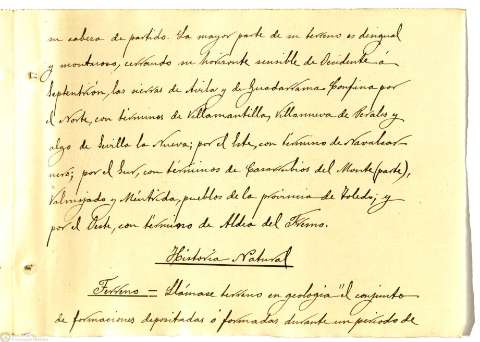 su cabeza de partido. La mayor parte de su terreno es desigual
y montuoso, cerrando su horizonte sensible de Occidente á
Septentrión, las sierras de Ávila y de Guadarrama. Confina por
el Norte, con términos de Villamantilla, Villanueva de Perales y
algo de Sevilla la Nueva; por el Este, con término de Navalcar
nero; por el Sur, con términos de Casarrubios del Monte (parte),
Valmojado y Méntrida, pueblos de la provincia de Toledo; y
por el Oeste, con término de Aldea del Fresno.
Historia Natural
Terreno = Llámase terreno en geología "el conjunto
de formaciones depositadas ó formadas durante un período de